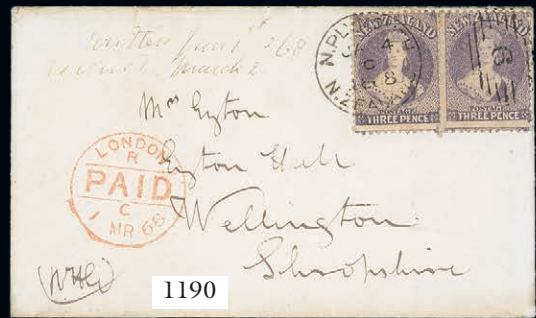 Written Jany 1st /68
received March 2
N.PLY
JA 4
C
68
N.ZEALAND
NEW ZEALAND
POSTAGE
THREE PENCE
NEW ZEALAND
POSTAGE
THREE PENCE
Mrs Eyton
Eyton Hall
Wellington
Shropshire
LONDON
R
PAID
C
1 MR 68
1190